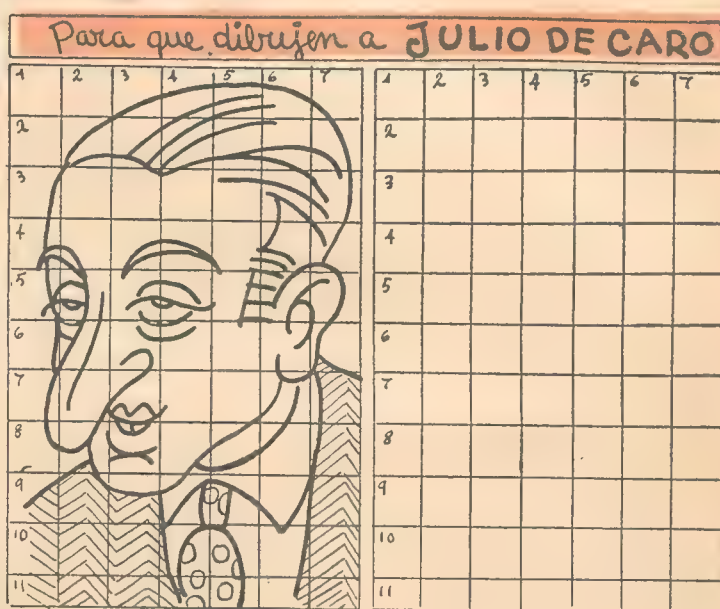 Para que dibujen a JULIO DE CARO
1 2 3 4 5 6 7
2
3
4
5
6
7
8
9
10
11
1 2 3 4 5 6 7
2
3
4
5
6
7
8
9
10
11